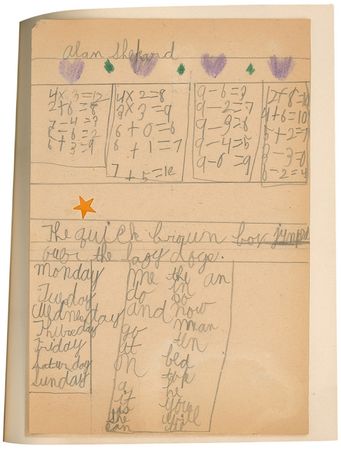 Alan Shepard
4 x 3 = 12
2 + 6 = 8
7 - 4 = 3
8 - 6 = 2
6 + 3 = 9
4 x 2 = 8
3 x 3 = 9
6 + 0 = 6
6 + 1 = 7
7 + 5 = 12
9 - 6 = 3
9 - 2 = 7
9 - 3 = 6
9 - 4 = 5
9 - 0 = 9
2 + 8 = 10
4 + 6 = 10
5 + 2 = 7
6 - 2 = 4
The quick brown box jumps
over the lazy dogs.
Monday
Tuesday
Wednesday
Thursday
Friday
Saturday
Sunday
me the an
do in so
and now
go man
at ten
on bed
a top
if he
you
she will
can did